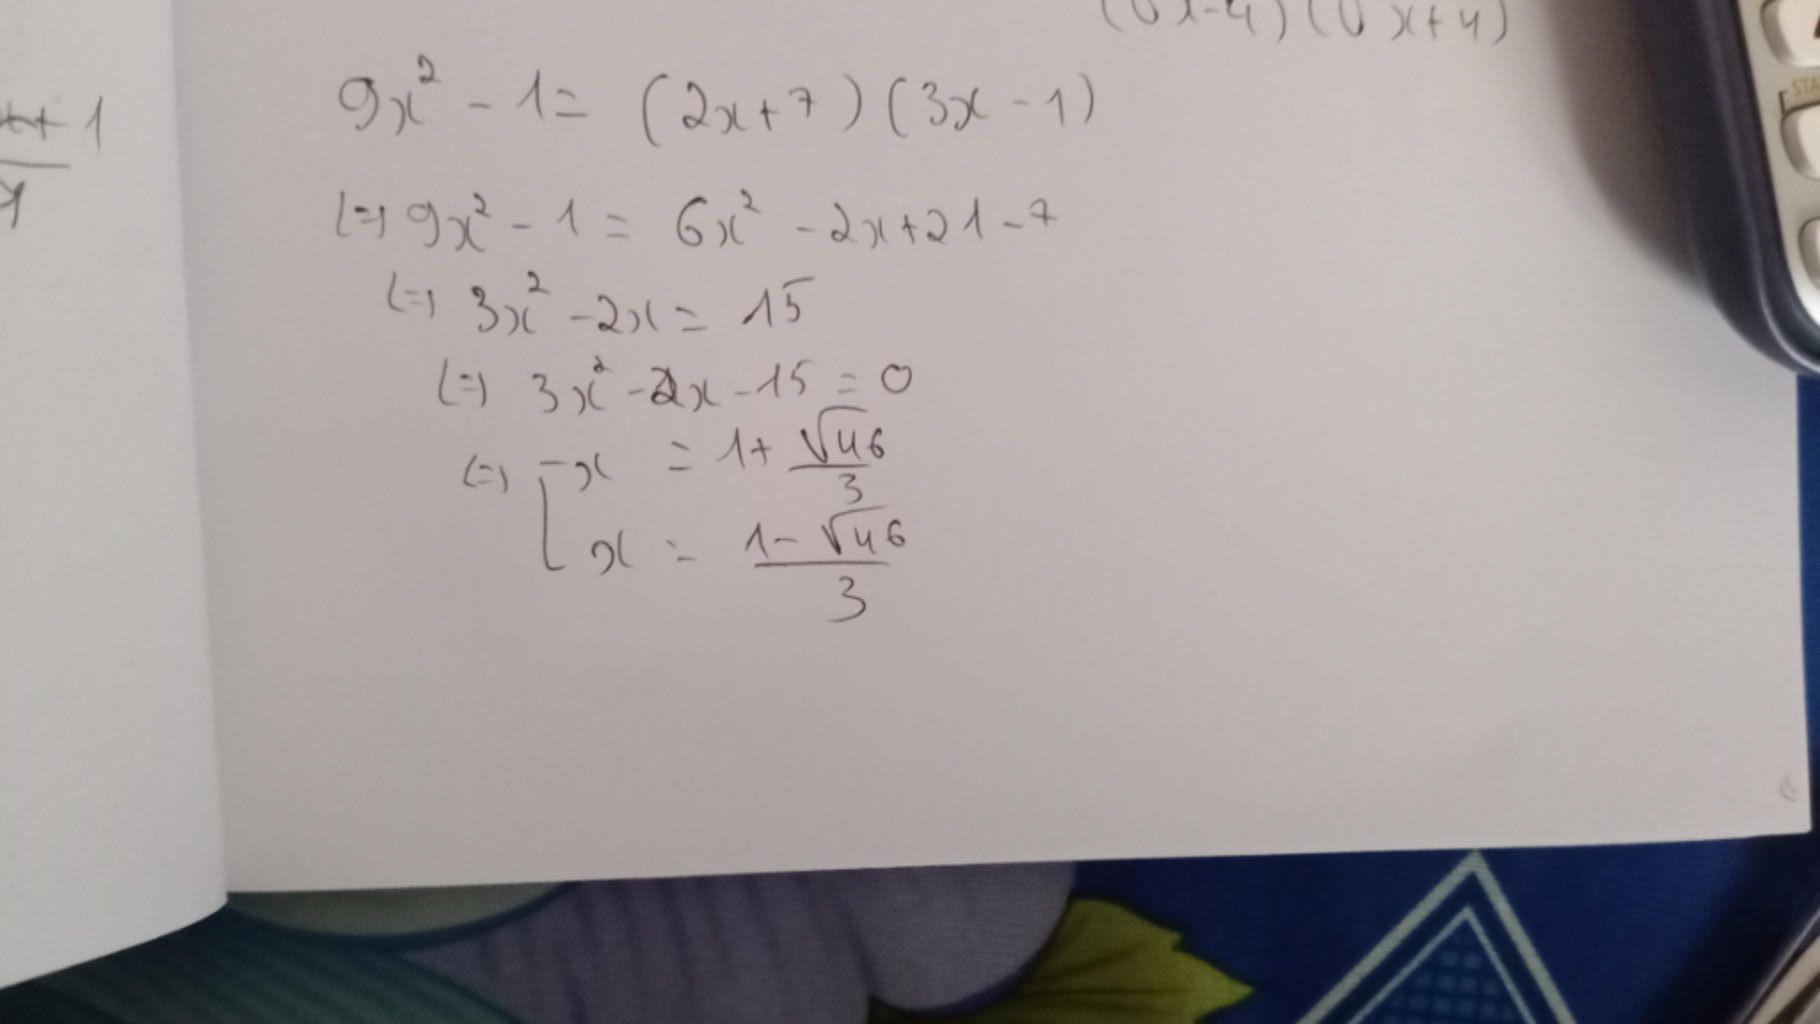 (x-4)(x+4)
9x² - 1 = (2x+7)(3x-1)
(=) 9x² - 1 = 6x² - 2x + 21 - 7
(=) 3x² - 2x = 15
(=) 3x² - 2x - 15 = 0
(=) [ x = 1 + √46 / 3
x = 1 - √46 / 3
+ 1
STA